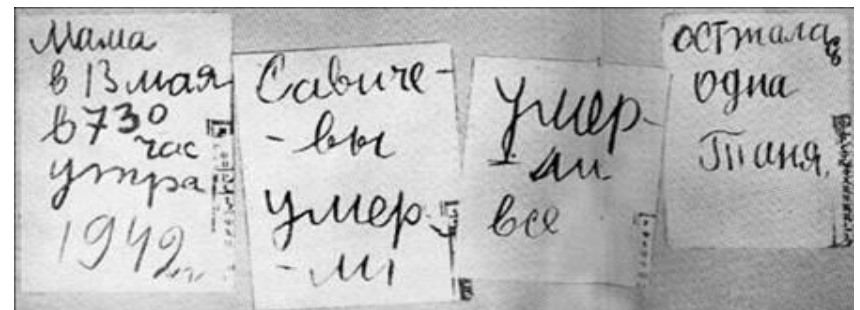 Мама
в 13 мая
в 730
час
утра
1942 г
Савиче-
-вы
умер
-ли
Умер-
-ли
все
Осталась
одна
Таня.